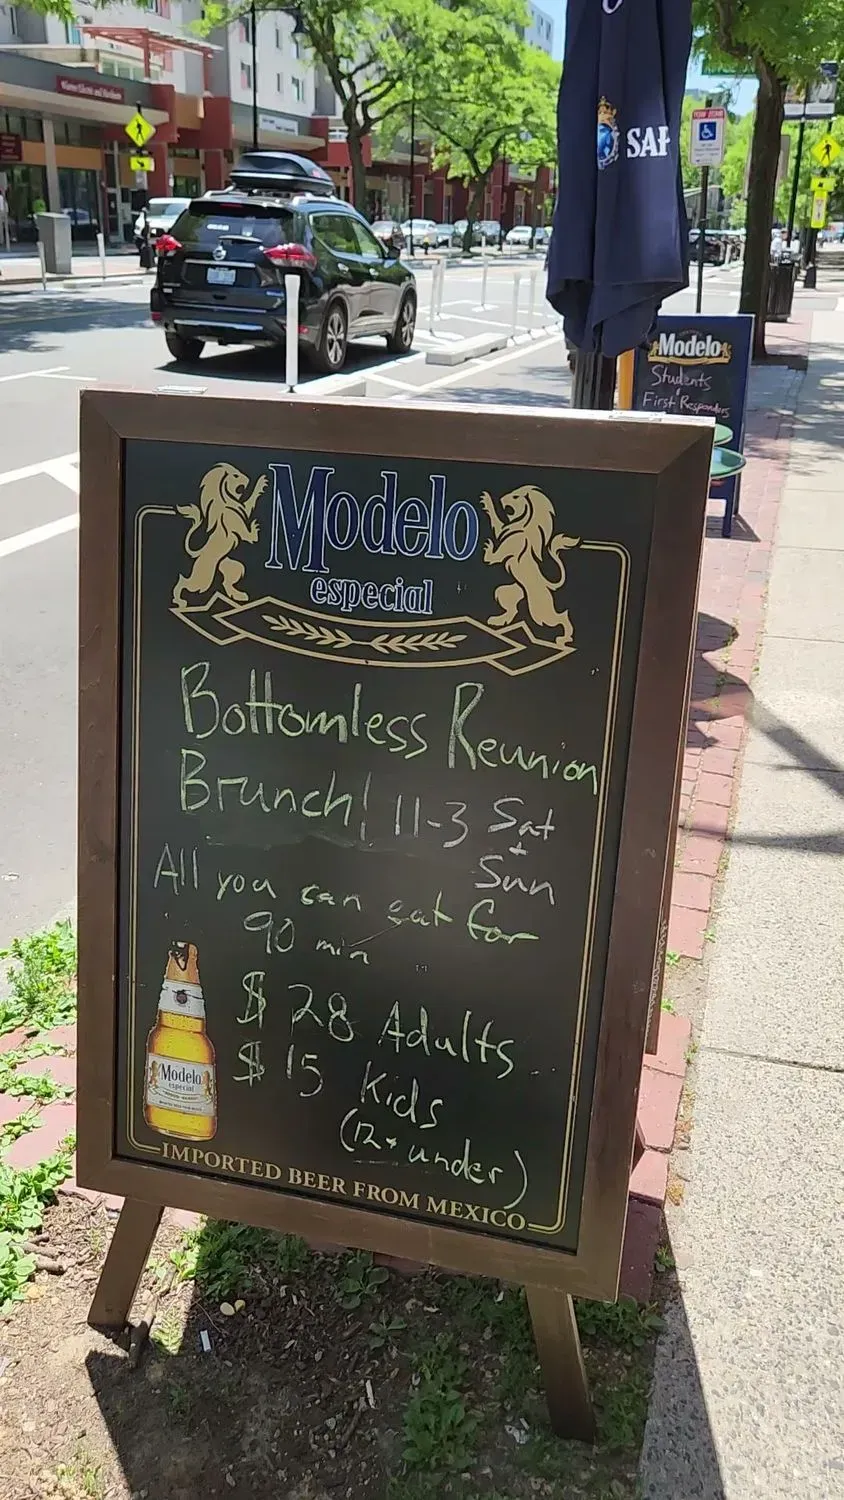 SAF
TOW ZONE
Modelo
Students
First Responders
Modelo
especial
Bottomless Reunion
Brunch! 11-3 Sat
+
Sun
All you can eat for
90 min
$ 28 Adults
$ 15 Kids
(12 + under)
Modelo
especial
IMPORTED BEER FROM MEXICO